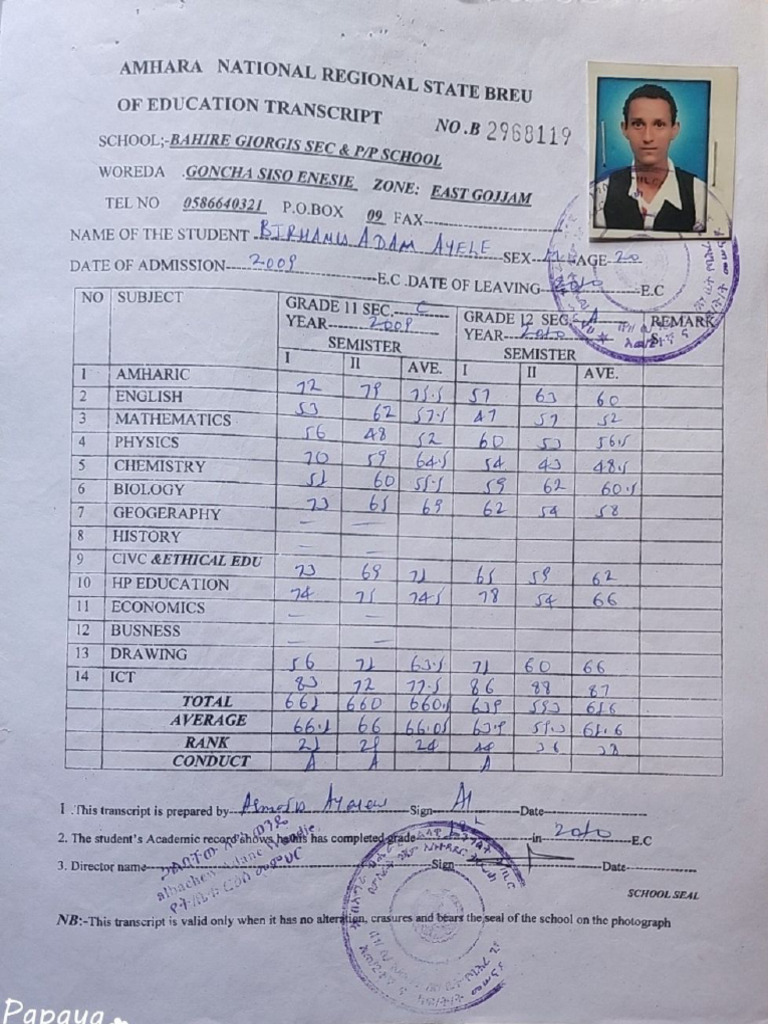 AMHARA NATIONAL REGIONAL STATE BREU
OF EDUCATION TRANSCRIPT
NO.B 2968119
SCHOOL;-BAHIRE GIORGIS SEC & P/P SCHOOL
WOREDA .GONCHA SISO ENESIE ZONE: EAST GOJJAM
TEL NO 0586640321 P.O.BOX 09 FAX
NAME OF THE STUDENT BIRHANU ADAM AYELE SEX M AGE 20
DATE OF ADMISSION 2009 E.C .DATE OF LEAVING 2010 E.C
NO SUBJECT GRADE 11 SEC. C GRADE 12 SEC A REMARKS
YEAR 2009 YEAR 2010
SEMISTER SEMISTER
I II AVE. I II AVE.
1 AMHARIC
2 ENGLISH 72 79 75.5 57 63 60
3 MATHEMATICS 53 62 57.5 47 57 52
4 PHYSICS 56 48 52 60 53 56.5
5 CHEMISTRY 70 59 64.5 54 43 48.5
6 BIOLOGY 51 60 55.5 59 62 60.5
7 GEOGERAPHY 73 65 69 62 54 58
8 HISTORY
9 CIVC &ETHICAL EDU
10 HP EDUCATION 73 69 71 65 59 62
11 ECONOMICS 74 75 74.5 78 54 66
12 BUSNESS
13 DRAWING 56 71 63.5 71 60 66
14 ICT 83 72 77.5 86 88 87
TOTAL 661 660 660.5 639 593 616
AVERAGE 66.1 66 66.05 63.9 59.3 61.6
RANK 24
CONDUCT A A A
1 .This transcript is prepared by Sign Date
2. The student's Academic record shows he/she has completed grade 12 in 2010 E.C
3. Director name Sign Date
SCHOOL SEAL
NB:-This transcript is valid only when it has no alteration, erasures and bears the seal of the school on the photograph
Papaya